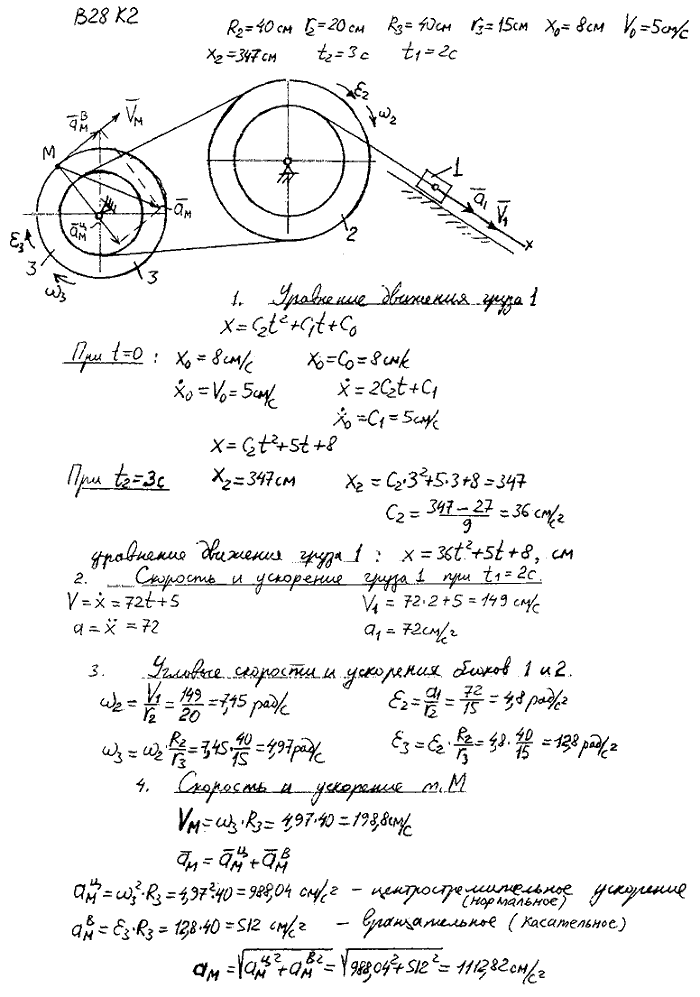 B28 K2
R₂=40см r₂=20см R₃=40см r₃=15см x₀=8см V₀=5см/с
x₂=347см t₂=3с t₁=2с
ε₂
ω₂
a̅ₘᴮ V̅ₘ
M
1
a̅ₘ
a̅₁ V̅₁
a̅ₘᶜ̧
2
x
ε₃
3 3
ω₃
1. Уравнение движения груза 1
x=C₂t²+C₁t+C₀
При t=0: x₀=8см/с x₀=C₀=8см/с
ẋ₀=V₀=5см/с ẋ=2C₂t+C₁
ẋ₀=C₁=5см/с
x=C₂t²+5t+8
При t₂=3с x₂=347см x₂=C₂·3²+5·3+8=347
C₂=(347-27)/9=36 см/с²
уравнение движения груза 1: x=36t²+5t+8, см
2. Скорость и ускорение груза 1 при t₁=2с.
V=ẋ=72t+5 V₁=72·2+5=149 см/с
a=ẍ=72 a₁=72см/с²
3. Угловые скорости и ускорения блоков 1 и 2.
ω₂=V₁/r₂=149/20=7,45 рад/с ε₂=a₁/r₂=72/15=4,8 рад/с²
ω₃=ω₂·R₂/r₃=7,45·40/15=4,97рад/с ε₃=ε₂·R₂/r₃=4,8·40/15=12,8 рад/с²
4. Скорость и ускорение т. М
Vₘ=ω₃·R₃=4,97·40=198,8см/с
a̅ₘ=a̅ₘц+a̅ₘв
aₘц=ω₃²·R₃=4,97²·40=988,04 см/с² – центростремительное ускорение
(нормальное)
aₘв=ε₃·R₃=12,8·40=512 см/с² – вращательное (касательное)
aₘ=√(aₘц²+aₘв²)=√(988,04²+512²)=1112,82см/с²